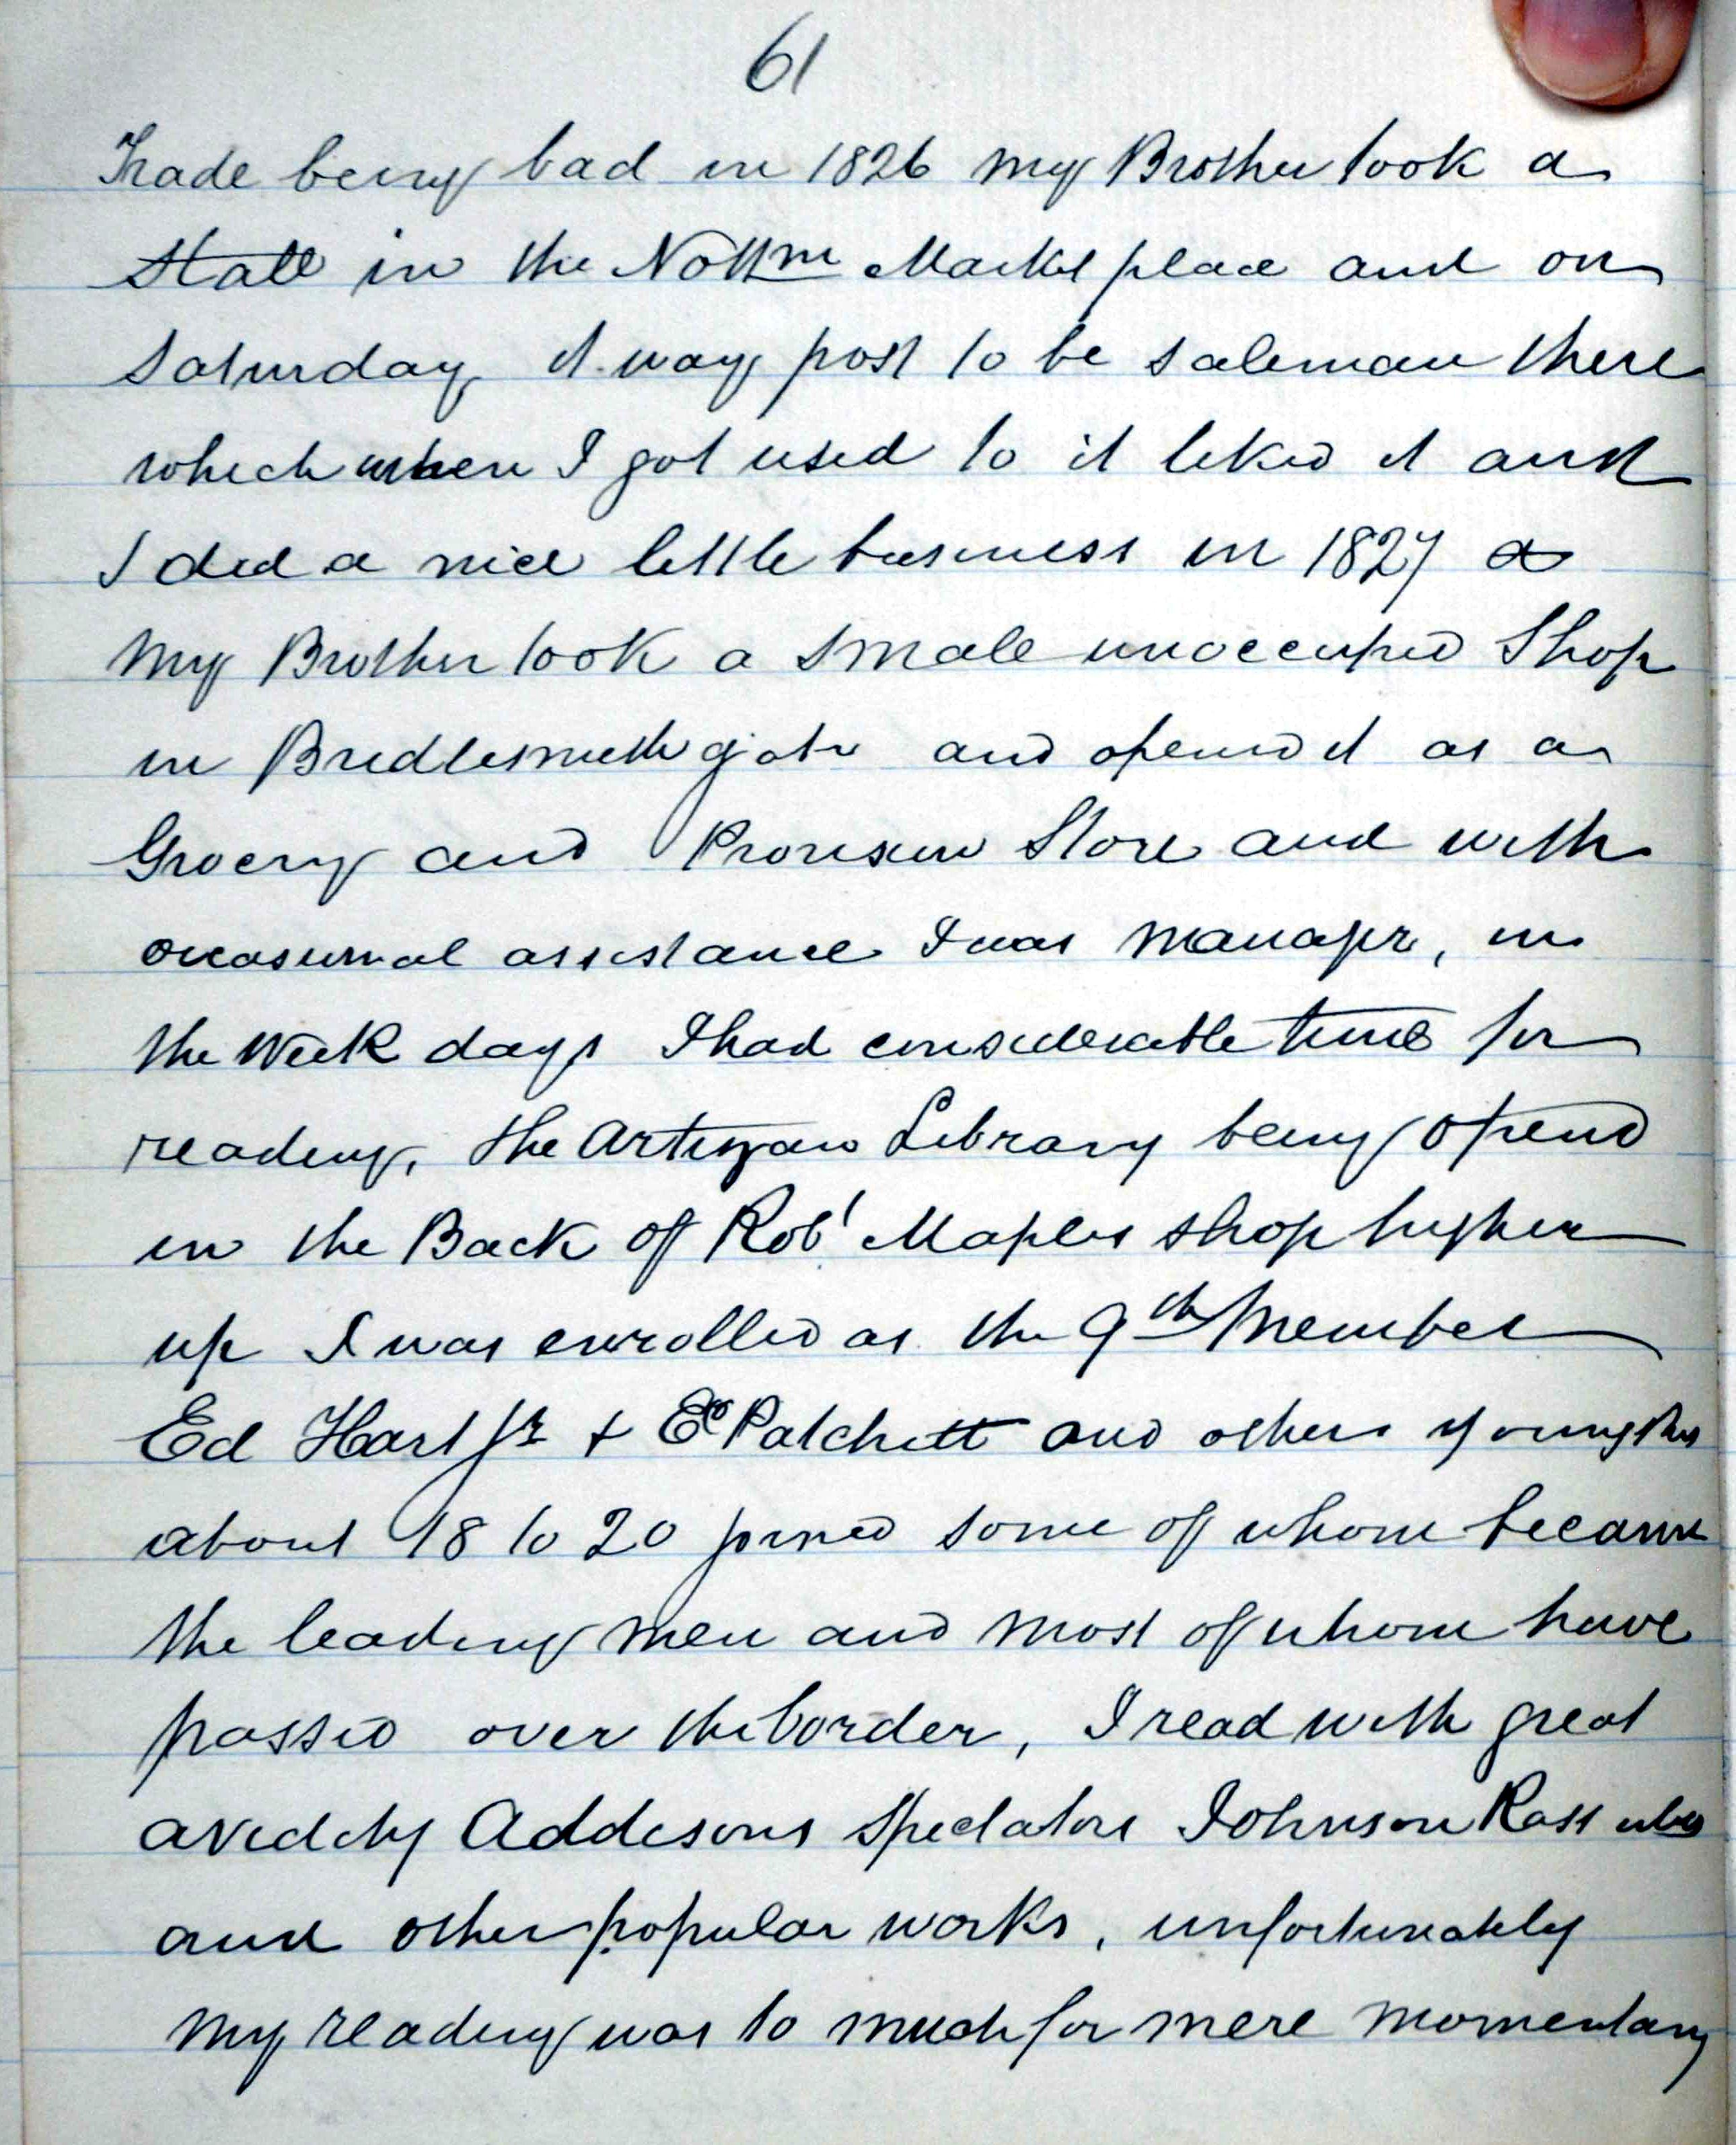 61
Trade being bad in 1826 my Brother took a
stall in the Nottm Market place and on
Saturday it was my post to be saleman there
which when I got used to it liked it and
I did a nice little business in 1827
my Brother took a small unoccupied Shop
in Bridlesmith gate and opened it as a
Grocery and Provision Store and with
occasional assistance I was manager, in
the week days I had considerable time for
reading, the Artizan Library being opend
in the Back of Robt Maples shop higher
up I was enrolled as the 9th Member
Ed Hart Jr + Ed Patchett and others youngsters
about 18 to 20 joined some of whom became
the leading men and most of whom have
passed over the border, I read with great
avidity Addisons Spectators Johnson Rasselas
and other popular works, unfortunately
my reading was to much for mere momentary